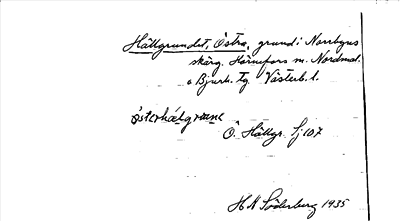 Hällgrundet, Östra, grund i Norrbyns
skärg. Hörnefors m. Nordmal.
o Bjurh. tg. Västerb. l.
österhälgrune
Ö. Hällgr. Sj 107
H N Söderberg 1935